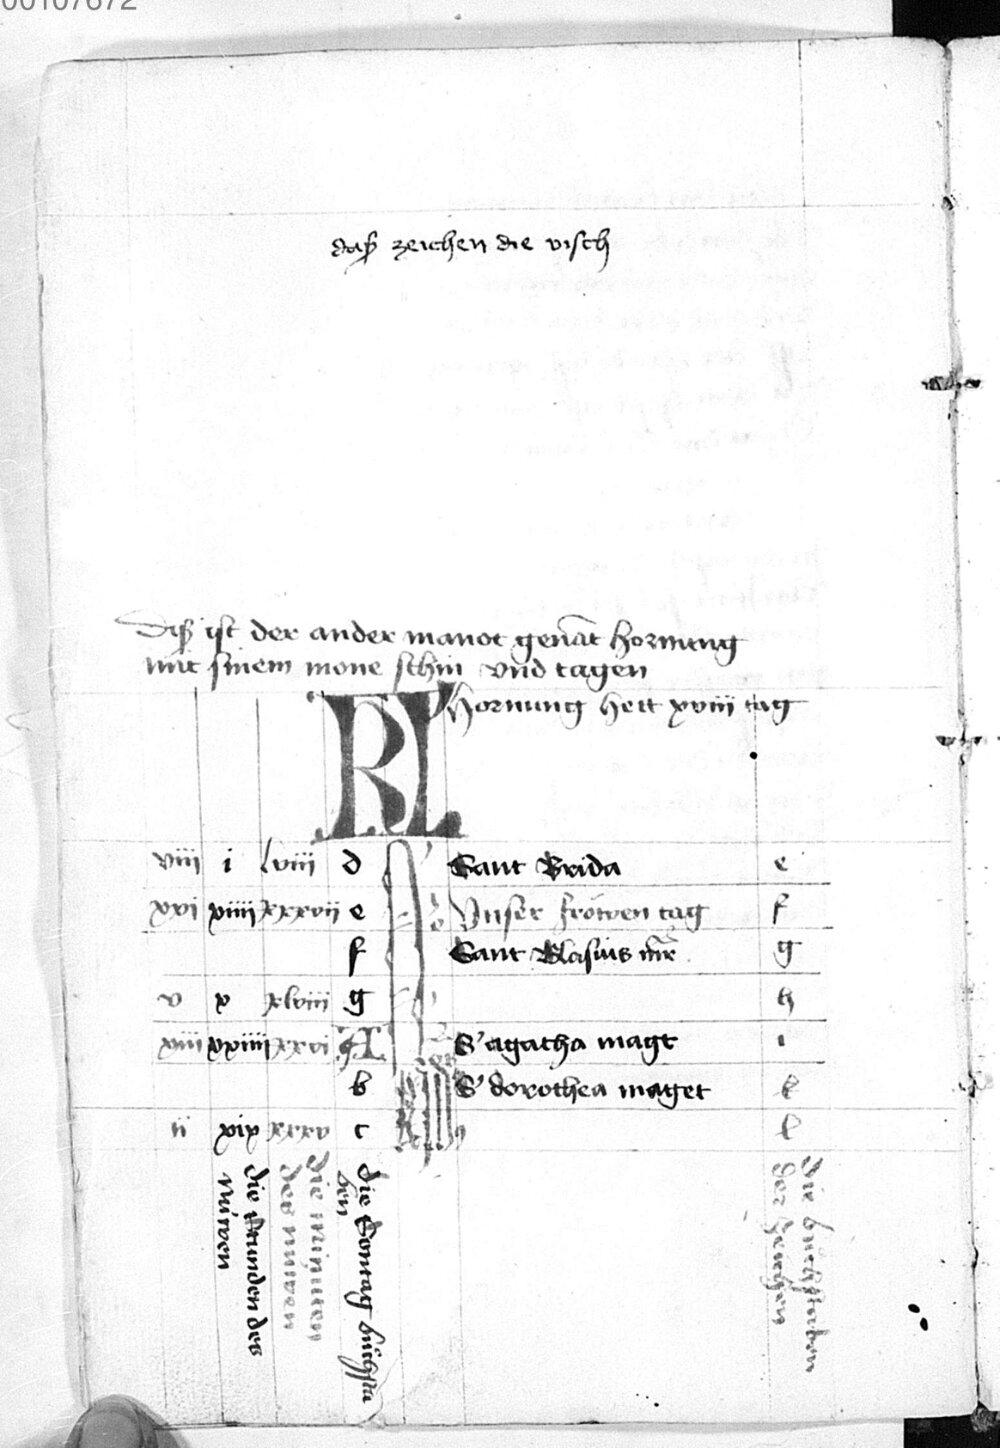 00107672
daß zeichen die visch
Diß ist der ander manot genāt hornung
mit sinem mone schin vnd tagen
KL hornung hett xxviii tag
viii i lviii d Sant Brida e
xvi xviiii xxxvii e Vnser frówen tag f
f Sant Blasius mr̄ g
v x xlviii g h
xiii xxiiii xxvi A S' agatha magt i
b S' dorothea maget k
ii xix xxxv c l
die stunden des
núwen
die minuten
des núwen
die Sontag bůchsta
ben
die bůchstaben
der zeichen